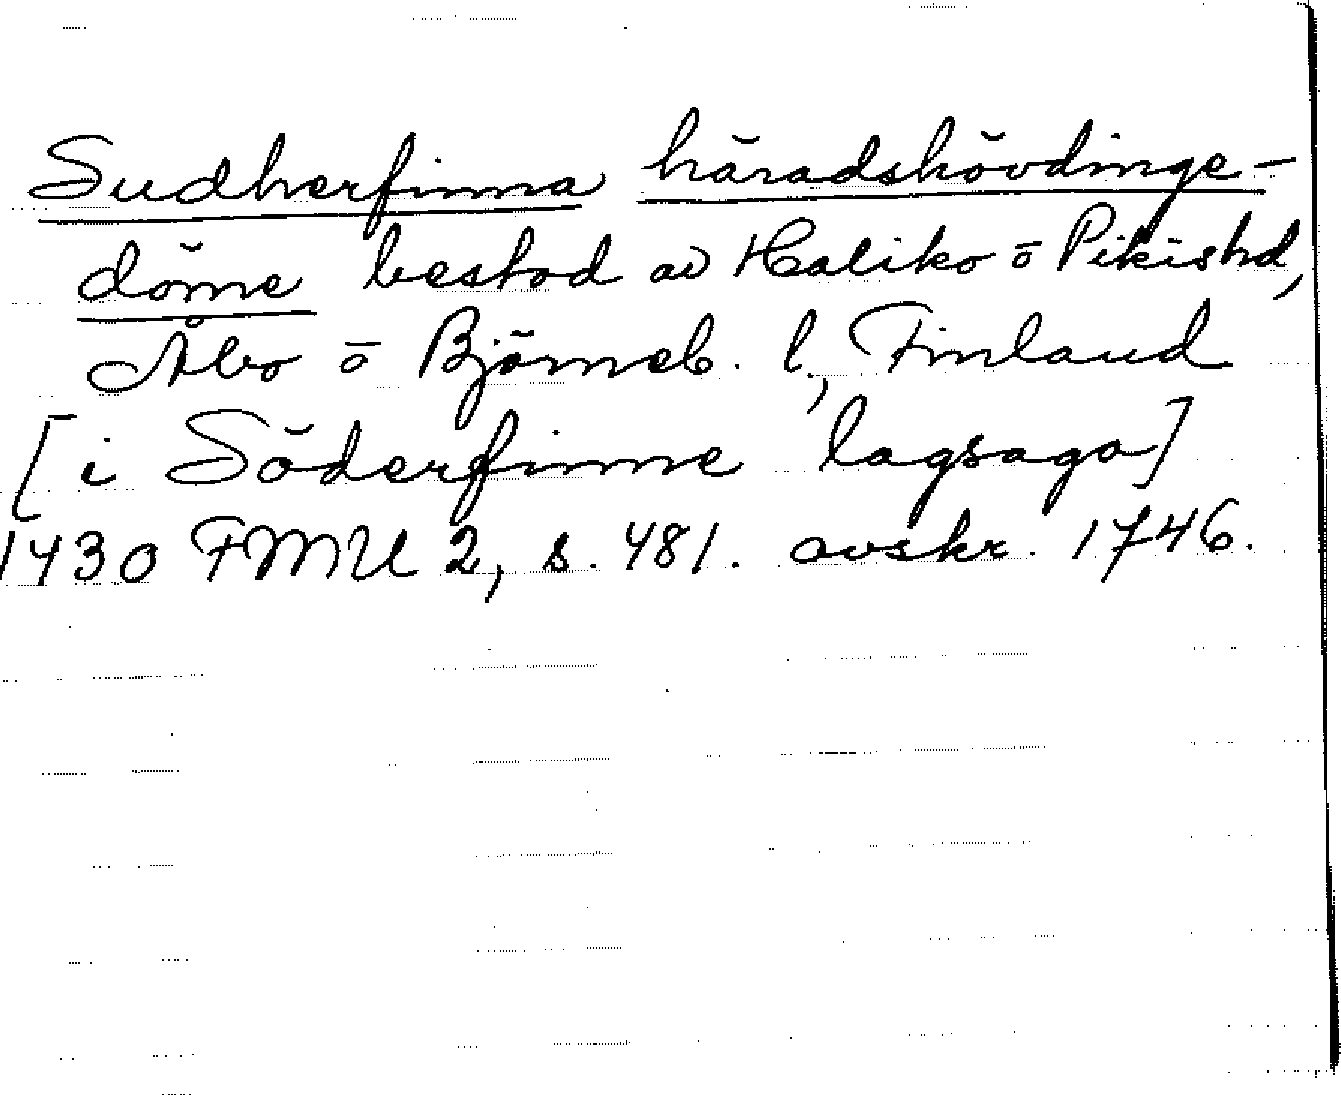 Sudherfinna häradshövdinge-
döme bestod av Haliko o Pikis hd,
Åbo o Björneb. l, Finland
[i Söderfinne lagsaga]
1430 FMU 2, s. 481. avskr. 1746.